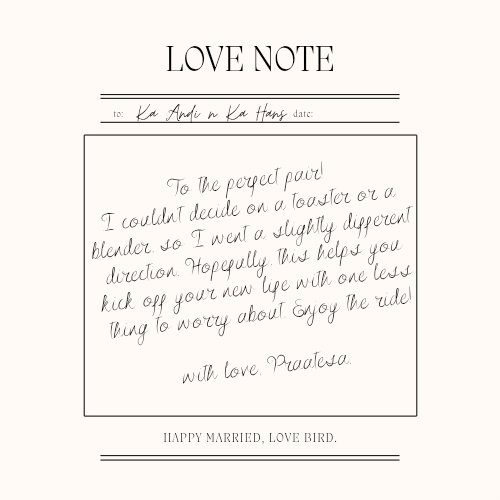 LOVE NOTE
to: Ka Andi n Ka Hans date:
To the perfect pair!
I couldn't decide on a toaster or a
blender, so I went a slightly different
direction. Hopefully, this helps you
kick off your new life with one less
thing to worry about. Enjoy the ride!
with love, Praatesa.
HAPPY MARRIED, LOVE BIRD.